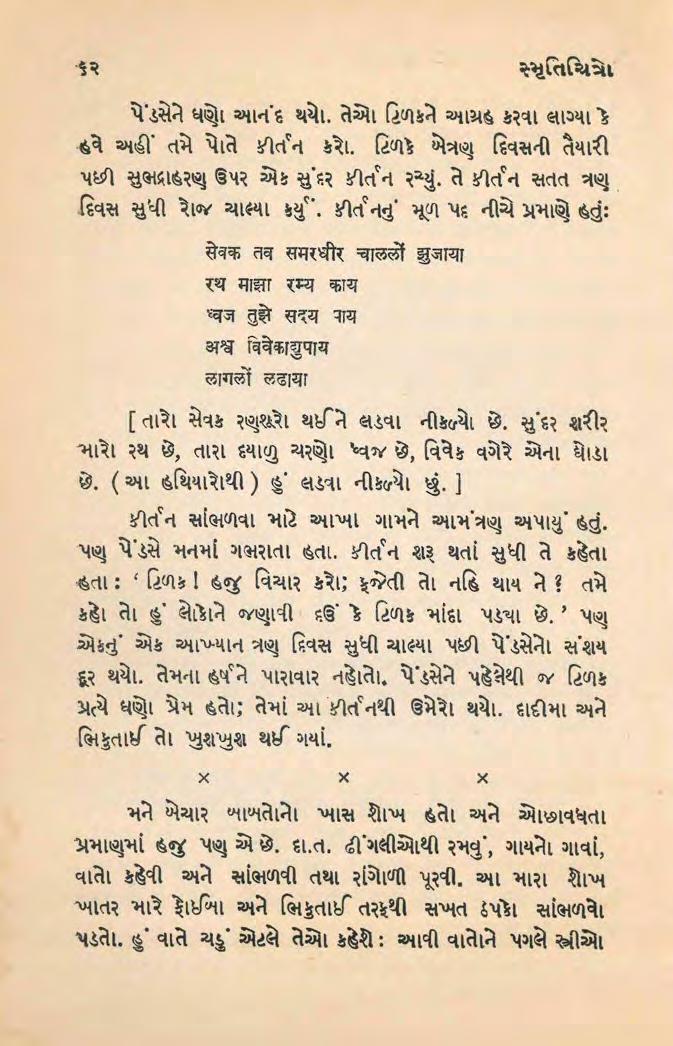 ૬૨ સ્મૃતિચિત્રો
પેંડસેને ઘણો આનંદ થયો. તેઓ ટિળકને આગ્રહ કરવા લાગ્યા કે
હવે અહીં તમે પોતે કીર્તન કરો. ટિળકે બેત્રણ દિવસની તૈયારી
પછી સુભદ્રાહરણ ઉપર એક સુંદર કીર્તન રચ્યું. તે કીર્તન સતત ત્રણ
દિવસ સુધી રોજ ચાલ્યા કર્યું. કીર્તનનું મૂળ પદ નીચે પ્રમાણે હતું:
सेवक तव समरधीर चाललों झुजाया
रथ माझा रम्य काय
ध्वज तुझे सदय पाय
अश्व विवेकाद्युपाय
लागलों लढाया
[ તારો સેવક રણશૂરો થઈને લડવા નીકળ્યો છે. સુંદર શરીર
મારો રથ છે, તારા દયાળુ ચરણો ધ્વજ છે, વિવેક વગેરે એના ઘોડા
છે. ( આ હથિયારોથી ) હું લડવા નીકળ્યો છું. ]
કીર્તન સાંભળવા માટે આખા ગામને આમંત્રણ અપાયું હતું.
પણ પેંડસે મનમાં ગભરાતા હતા. કીર્તન શરૂ થતાં સુધી તે કહેતા
હતા : ‘ ટિળક ! હજુ વિચાર કરો; ફજેતી તો નહિ થાય ને ? તમે
કહો તો હું લોકોને જણાવી દઉં કે ટિળક માંદા પડ્યા છે. ’ પણ
એકનું એક આખ્યાન ત્રણ દિવસ સુધી ચાલ્યા પછી પેંડસેનો સંશય
દૂર થયો. તેમના હર્ષને પારાવાર નહોતો. પેંડસેને પહેલેથી જ ટિળક
પ્રત્યે ઘણો પ્રેમ હતો; તેમાં આ કીર્તનથી ઉમેરો થયો. દાદીમા અને
ભિકુતાઈ તો ખુશખુશ થઈ ગયાં.
× × ×
મને બેચાર બાબતોનો ખાસ શોખ હતો અને ઓછાવધતા
પ્રમાણમાં હજુ પણ એ છે. દા.ત. ઢીંગલીઓથી રમવું, ગાયનો ગાવાં,
વાતો કહેવી અને સાંભળવી તથા રાંગોળી પૂરવી. આ મારા શોખ
ખાતર મારે ફોઈબા અને ભિકુતાઈ તરફથી સખત ઠપકો સાંભળવો
પડતો. હું વાતે ચડું એટલે તેઓ કહેશે : આવી વાતોને પગલે સ્ત્રીઓ